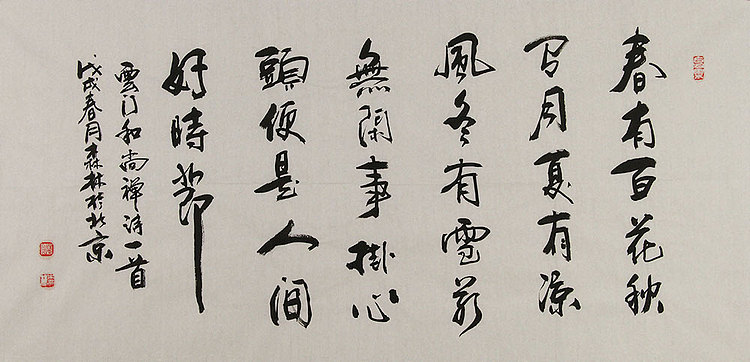 春有百花秋
有月夏有涼
風冬有雪若
無閑事掛心
頭便是人間
好時節
雲门和尚禅诗一首
戊戌春月森林於北京